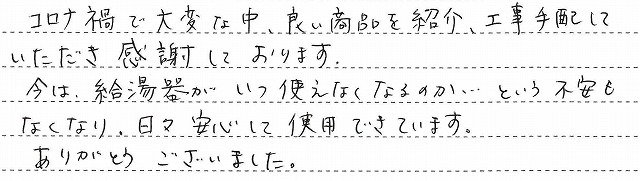 コロナ禍で大変な中、良い商品を紹介、工事手配して
いただき感謝しております。
今は、給湯器がいつ使えなくなるのか…という不安も
なくなり、日々安心して使用できています。
ありがとうございました。